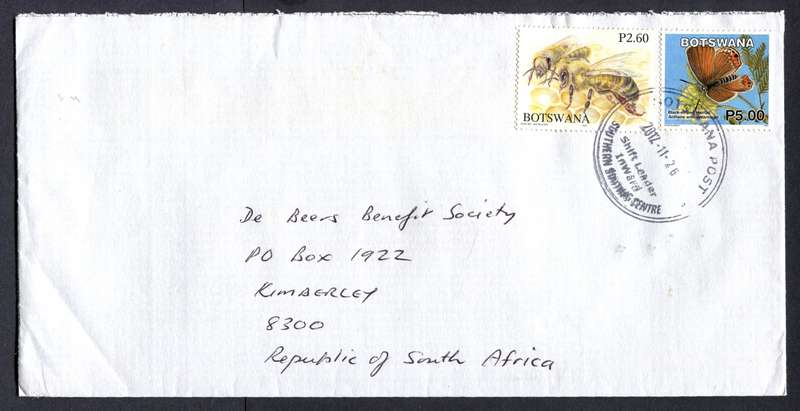 P2.60
BOTSWANA
BOTSWANA
P5.00
BOTSWANA POST
2012-11-26
Shift Leader
Inward
SOUTHERN SORTING CENTRE
De Beers Benefit Society
PO Box 1922
KIMBERLEY
8300
Republic of South Africa